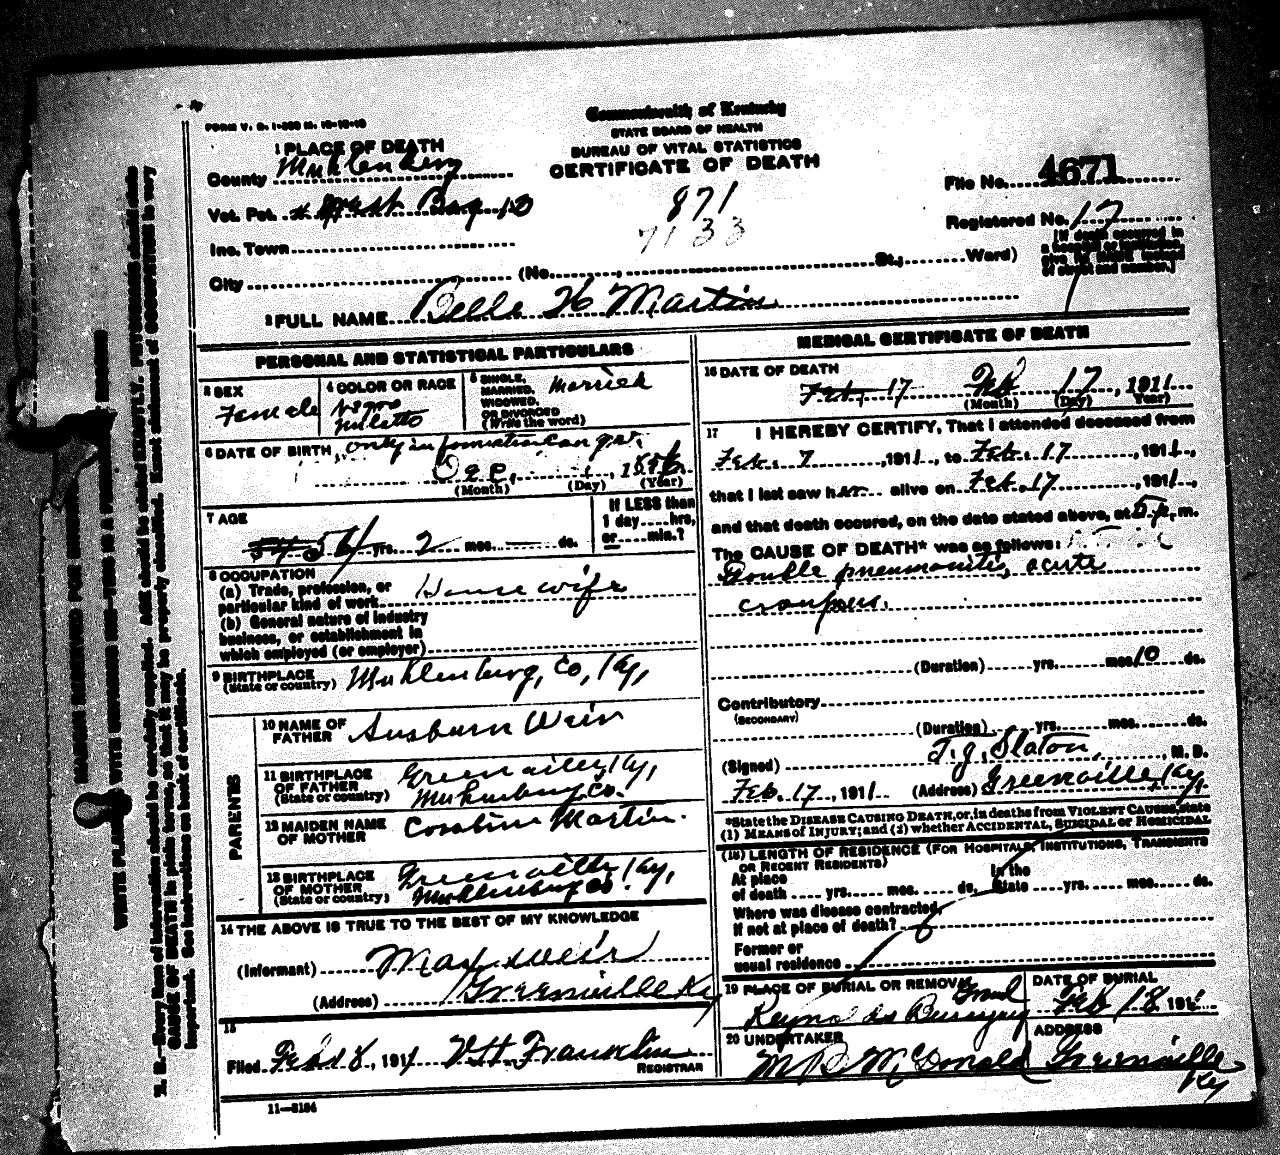 FORM V. S. 1-
Commonwealth of Kentucky
STATE BOARD OF HEALTH
BUREAU OF VITAL STATISTICS
CERTIFICATE OF DEATH
1 PLACE OF DEATH
County Muhlenberg
Vot. Pct.
Inc. Town
City (No. , St.; Ward)
871
7133
File No. 4671
Registered No. 17
[If death occurred in a hospital or institution, give its NAME instead of street and number.]
2 FULL NAME Belle W Martin
PERSONAL AND STATISTICAL PARTICULARS
3 SEX Female
4 COLOR OR RACE Negro Mulatto
5 SINGLE, MARRIED, WIDOWED, OR DIVORCED (Write the word) Married
6 DATE OF BIRTH, only information can get.
Dec, , 185
(Month) (Day) (Year)
7 AGE 54 56 yrs. 2 mos. — ds.
If LESS than 1 day hrs, or min.?
8 OCCUPATION
(a) Trade, profession, or particular kind of work House wife
(b) General nature of industry business, or establishment in which employed (or employer)
9 BIRTHPLACE (State or country) Muhlenburg, Co, Ky,
PARENTS
10 NAME OF FATHER Ausburn Weir
11 BIRTHPLACE OF FATHER (State or country) Greenville, Ky, Muhlenburg Co.
12 MAIDEN NAME OF MOTHER Martin.
13 BIRTHPLACE OF MOTHER (State or country) Greenville Ky, Muhlenburg Co
14 THE ABOVE IS TRUE TO THE BEST OF MY KNOWLEDGE
(Informant) Max Weir
(Address) Greenville Ky
15
Filed Feb 18, 1911 V H Franklin
REGISTRAR
11—3104
MEDICAL CERTIFICATE OF DEATH
16 DATE OF DEATH
Feb, 17 Feb 17, 1911
(Month) (Day) (Year)
17 I HEREBY CERTIFY, That I attended deceased from
Feb. 7, 1911, to Feb. 17, 1911,
that I last saw her alive on Feb. 17, 1911,
and that death occured, on the date stated above, at 5 p. m.
The CAUSE OF DEATH* was as follows:
Double pneumonitis, acute
croupous.
(Duration) yrs. mos. 10 ds.
Contributory (SECONDARY)
(Duration) yrs. mos. ds.
(Signed) T. J. Slaton, M. D.
Feb. 17, 1911 (Address) Greenville, Ky.
*State the DISEASE CAUSING DEATH, or, in deaths from VIOLENT CAUSES, state
(1) MEANS OF INJURY; and (2) whether ACCIDENTAL, SUICIDAL or HOMICIDAL
(18) LENGTH OF RESIDENCE (FOR HOSPITALS, INSTITUTIONS, TRANSIENTS OR RECENT RESIDENTS)
At place of death yrs. mos. ds, In the State yrs. mos. ds.
Where was disease contracted, If not at place of death?
Former or usual residence
19 PLACE OF BURIAL OR REMOVAL Reynolds Burying Ground
DATE OF BURIAL Feb 18 191
20 UNDERTAKER M R McDonald
ADDRESS Greenville Ky
MARGIN RESERVED FOR BINDING
WRITE PLAINLY WITH UNFADING INK—THIS IS A PERMANENT RECORD
N. B.—Every item of information should be carefully supplied. AGE should be stated EXACTLY. PHYSICIANS should state
CAUSE OF DEATH in plain terms, so that it may be properly classified. Exact statement of OCCUPATION is very
important. See instructions on back of certificate.